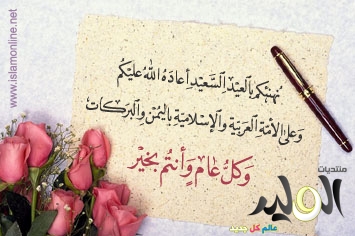 www.islamonline.net
نهنئكم بالعيد السعيد أعاده الله عليكم
وعلى الأمة العربية والإسلامية باليمن والبركات
وكل عام وأنتم بخير
منتديات
الوليد
عالم كل جديد